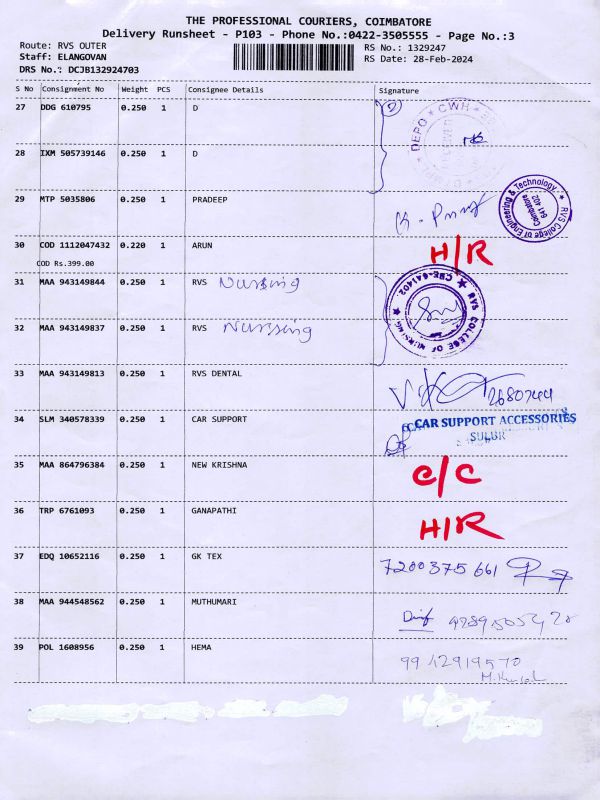 THE PROFESSIONAL COURIERS, COIMBATORE
Delivery Runsheet - P103 - Phone No.:0422-3505555 - Page No.:3
Route: RVS OUTER RS No.: 1329247
Staff: ELANGOVAN RS Date: 28-Feb-2024
DRS No.: DCJB132924703
S No Consignment No Weight PCS Consignee Details Signature
27 DDG 610795 0.250 1 D
DEPO * CWH
28 IXM 505739146 0.250 1 D
29 MTP 5035806 0.250 1 PRADEEP
RVS College of Engineering & Technology Coimbatore 641 402
30 COD 1112047432 0.220 1 ARUN H/R
COD Rs.399.00
31 MAA 943149844 0.250 1 RVS Nursing
32 MAA 943149837 0.250 1 RVS Nursing
RVS COLLEGE OF NURSING CBE-641402
33 MAA 943149813 0.250 1 RVS DENTAL 2680744
34 SLM 340578339 0.250 1 CAR SUPPORT CAR SUPPORT ACCESSORIES
SULUR
35 MAA 864796384 0.250 1 NEW KRISHNA C/C
36 TRP 6761093 0.250 1 GANAPATHI H/R
37 EDQ 10652116 0.250 1 GK TEX 7200375661
38 MAA 944548562 0.250 1 MUTHUMARI
39 POL 1608956 0.250 1 HEMA 9942919570